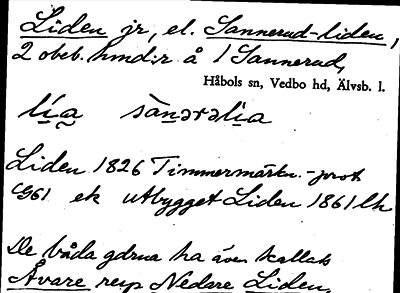 Liden jr, el. Sannerud-liden,
2 obeb. hmd:r å 1 Sannerud,
Håbols sn, Vedbo hd, Älvsb. l.
Liden 1826 Timmermärkn.-prot
C961 ek utbygget Liden 1861 Lk
De båda gdrna ha även kallats
Övare resp Nedare Liden.